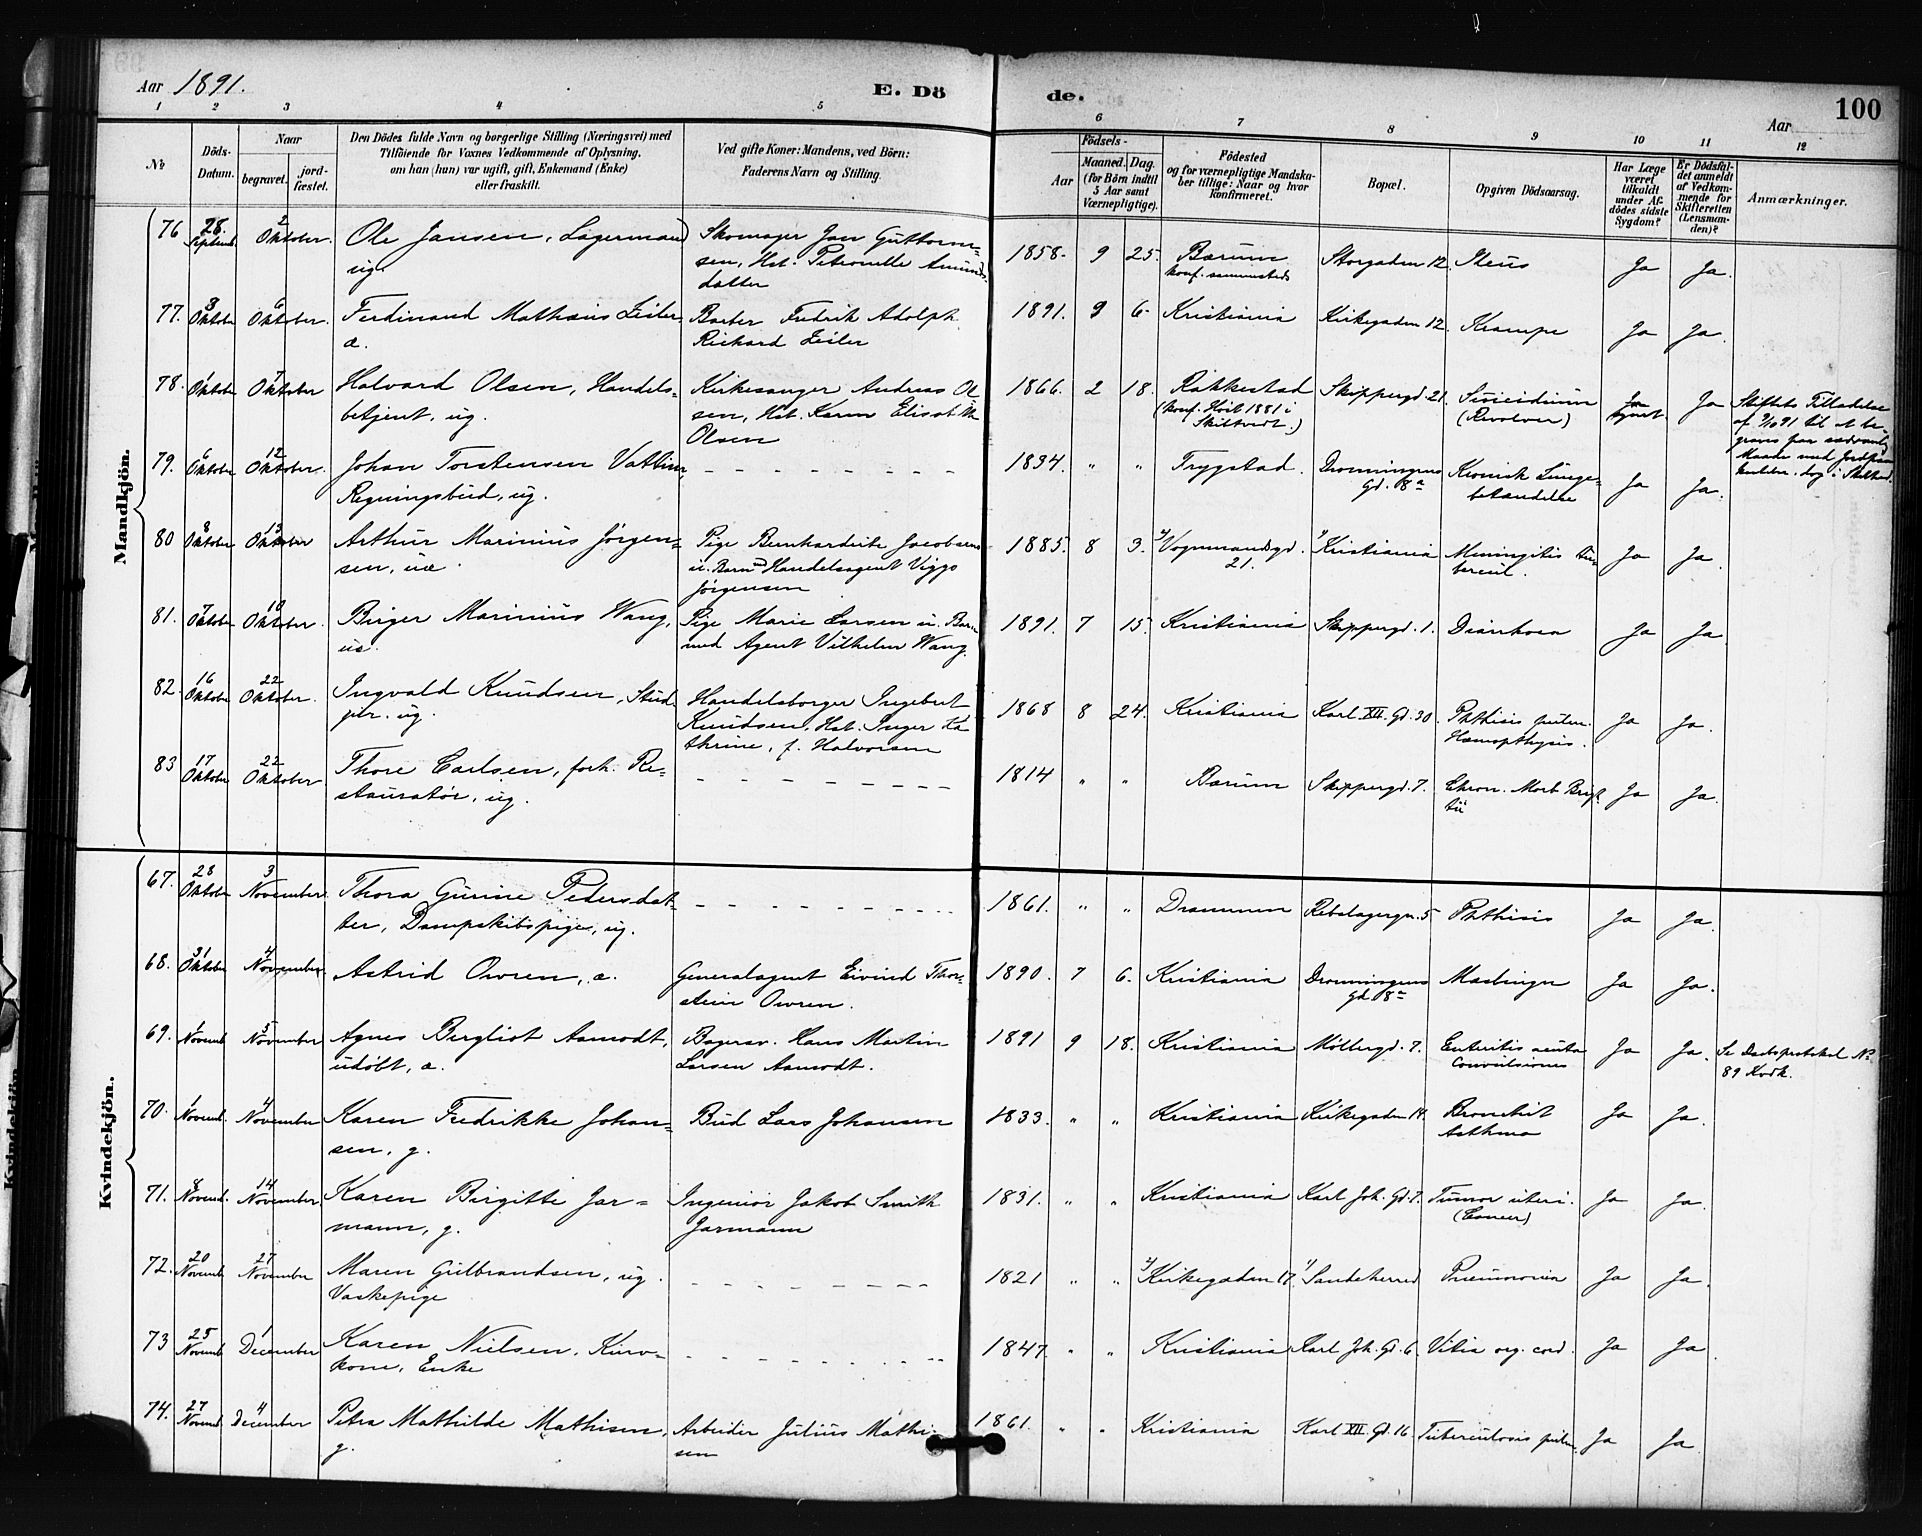 Aar 1891.
E. Döde.
Aar
100
1 2 3 4 5 6 7 8 9 10 11 12
№
Döds-Datum.
Naar
begravet.
jordfæstet.
Den Dödes fulde Navn og borgerlige Stilling (Næringsvei) med
Tilföiende for Voxnes Vedkommende af Oplysning,
om han (hun) var ugift, gift, Enkemand (Enke)
eller fraskilt.
Ved gifte Koner: Mandens, ved Börn:
Faderens Navn og Stilling.
Födsels-
Aar
Maaned.
Dag.
(for Börn indtil
5 Aar samt
Værnepligtige).
Födested
og for værnepligtige Mandska-
ber tillige: Naar og hvor
konfirmeret.
Bopæl.
Opgiven Dödsaarsag.
Har Læge
været
tilkaldt
under Af-
dödes sidste
Sygdom?
Er Dödsfal-
det anmeldt
af Vedkom-
mende for
Skifteretten
(Lensman-
den)?
Anmærkninger.
Mandkjön.
76 28 Septemb. 2 Oktober. Ole Jansen, Lagermand ug. Skomager Jan Guttorm-sen, Hst. Petronelle Amunds-datter 1858. 9 25. Bærum konf. sammesteds Storgaden 12. Ileus Ja Ja.
77. 3 Oktober 6 Oktober. Ferdinand Mathæus Zeiler, æ. Barber Fredrik Adolph Richard Zeiler 1891. 9 6. Kristiania Kirkegaden 12. Krampe Ja Ja.
78. 1 Oktober 7 Oktober Halvard Olsen, Handels-betjent, ug. Kirkesanger Andreas Ol-sen, Hst. Karen Elisabeth Olsen 1866. 2 18. Rakkestad (konf. Høst 1881 i Skiltvedt.) Skippergd. 21. Suicidium (Revolver) Ja Stiftets Tilladelse af 3/10 91 til at be-graves paa sædvanlig Maade med Jordpaa-kastelse
79. 6 Oktober 12 Oktober. Johan Torstensen Vatten, Regningsbud, ug. 1834. " " Trygstad. Dronningens Gd. 8a Kronisk Lunge-betændelse Ja Ja.
80 8 Oktober 13 Oktober Arthur Marinius Jørgen-sen, uæ. Pige Bernhardine Jacobsens u. Barn Handelsagent Viggo Jørgensen 1885. 8 3. Vognmandsgd. 21. Kristiania Meningitis tu-bercul. Ja Ja.
81. 7 Oktober 10 Oktober. Birger Marinius Wang, uæ. Pige Marie Larsen u. Barn med Agent Vilhelm Wang. 1891. 7 15. Kristiania Skippergd. 1. Diarrhoea Ja Ja.
82. 16 Oktober 22 Oktober. Ingvald Knudsen, Stud. jur. ug. Handelsborger Ingebret Knudsen, Hst. Inger Ka-thrine, f. Halvorsen 1868 8 24. Kristiania Karl XII. Gd. 30. Phthisis pulm. Hæmopthysis. Ja Ja.
83 17 Oktober 22 Oktober Thore Carlsen, forh. Re-stauratør, ug. 1814 " " Bærum Skippergd. 7. Chron. Morb. Brigh-tii Ja Ja.
Kvindekjön.
67. 28 Oktober 3 November. Thora Gurine Pedersdat-ter, Dampskibspige, ug. 1861. " " Drammen Rebslagergn. 5 Phthisis Ja Ja.
68. 31 Oktober 4 November Astrid Owren, æ. Generalagent Eivind Thor-stein Owren. 1890. 7 6. Kristiania Dronningens Gd. 8a Mæslinger Ja Ja.
69. 1 Novemb. 5 November Agnes Bergliot Aamodt, udøbt, æ. Bagersv. Hans Martin Larsen Aamodt. 1891 9 18. Kristiania Møllergd. 7. Enteritis acuta Convulsiones Ja Ja. Se Daabsprotokol № 89 Kvdk.
70. 1 Novemb. 4 November Karen Fredrikke Johan-sen, g. Bud Lars Johansen 1833. " " Kristiania Kirkegaden 14. Bronchit Asthma Ja Ja.
71. 8 Novemb. 14 November. Karen Birgitte Jar-mann, g. Ingeniør Jakob Smith Jarmann 1831. " " Kristiania Karl Joh. Gd. 7. Tumor uteri. (Cancer) Ja Ja.
72. 20 Novemb 27 November Maren Gulbrandsen, ug. Vaskepige 1821 " " Kirkegaden 17 Sandeherred Pneumonia Ja Ja.
73 25 Novemb 1 December Karen Nielsen, Kurv-kone, Enke 1847. " " Kristiania Karl Joh. Gd. 6. Vitia org. cord. Ja Ja.
74. 27 Novemb 4 December Petra Mathilde Mathisen, g. Arbeider Julius Mathi-sen 1861. " " Kristiania Karl XII Gd. 16 Tuberculosis pulm. Ja Ja.